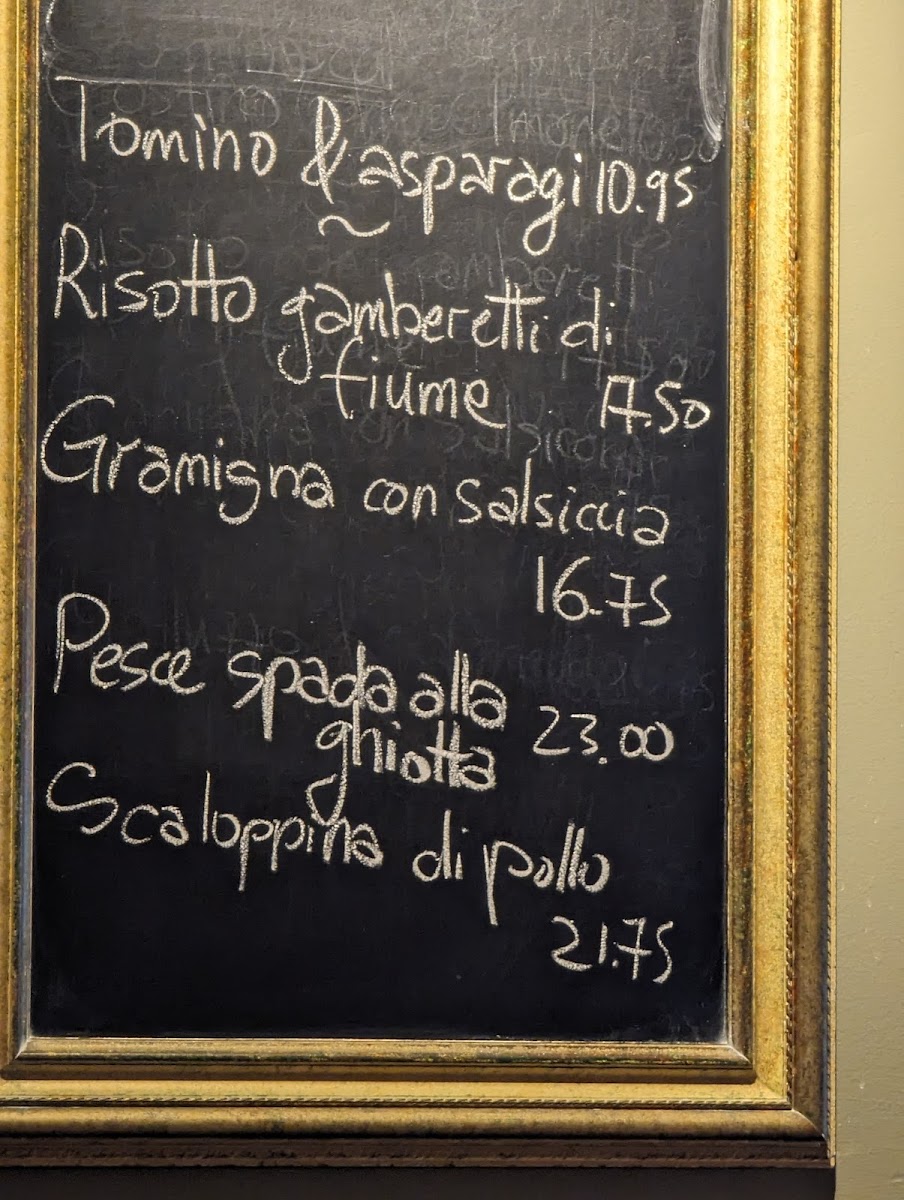 Tomino & asparagi 10.95
Risotto gamberetti di
fiume 17.50
Gramigna con salsiccia
16.75
Pesce spada alla
ghiotta 23.00
Scaloppina di pollo
21.75